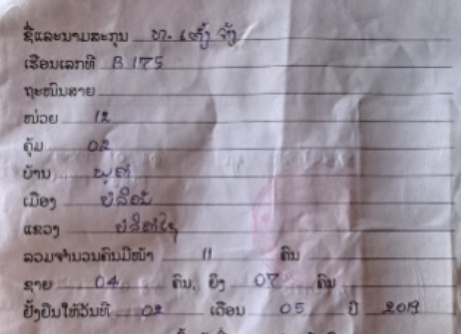 ຊື່ແລະນາມສະກຸນ ທ. ເຕັ້ງ ຈັ່ງ
ເຮືອນເລກທີ B 175
ຖະໜົນສາຍ
ໜ່ວຍ 12
ຄຸ້ມ 02
ບ້ານ
ເມືອງ
ແຂວງ
ລວມຈຳນວນຄົນມີໜ້າ 11 ຄົນ
ຊາຍ 04 ຄົນ, ຍິງ 07 ຄົນ
ຢັ້ງຢືນໃຫ້ວັນທີ 02 ເດືອນ 05 ປີ 2019